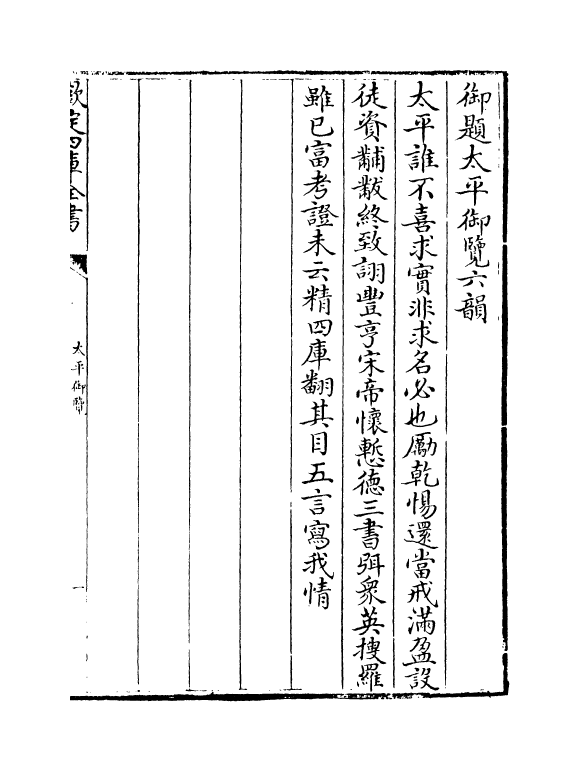 御題太平御覽六韻
太平誰不喜求實非求名必也勵乾惕還當戒滿盈設
徒資黼黻終致詡豐亨宋帝懷慙德三書弭衆英摉羅
雖已富考證未云精四庫翻其目五言寫我情
欽定四庫全書
太平御覽
一